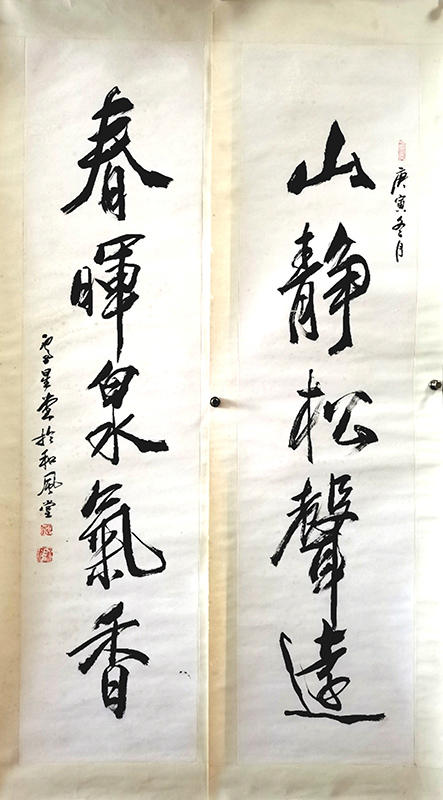 庚寅冬月
山靜松聲遠
春暉泉氣香
星於和風堂